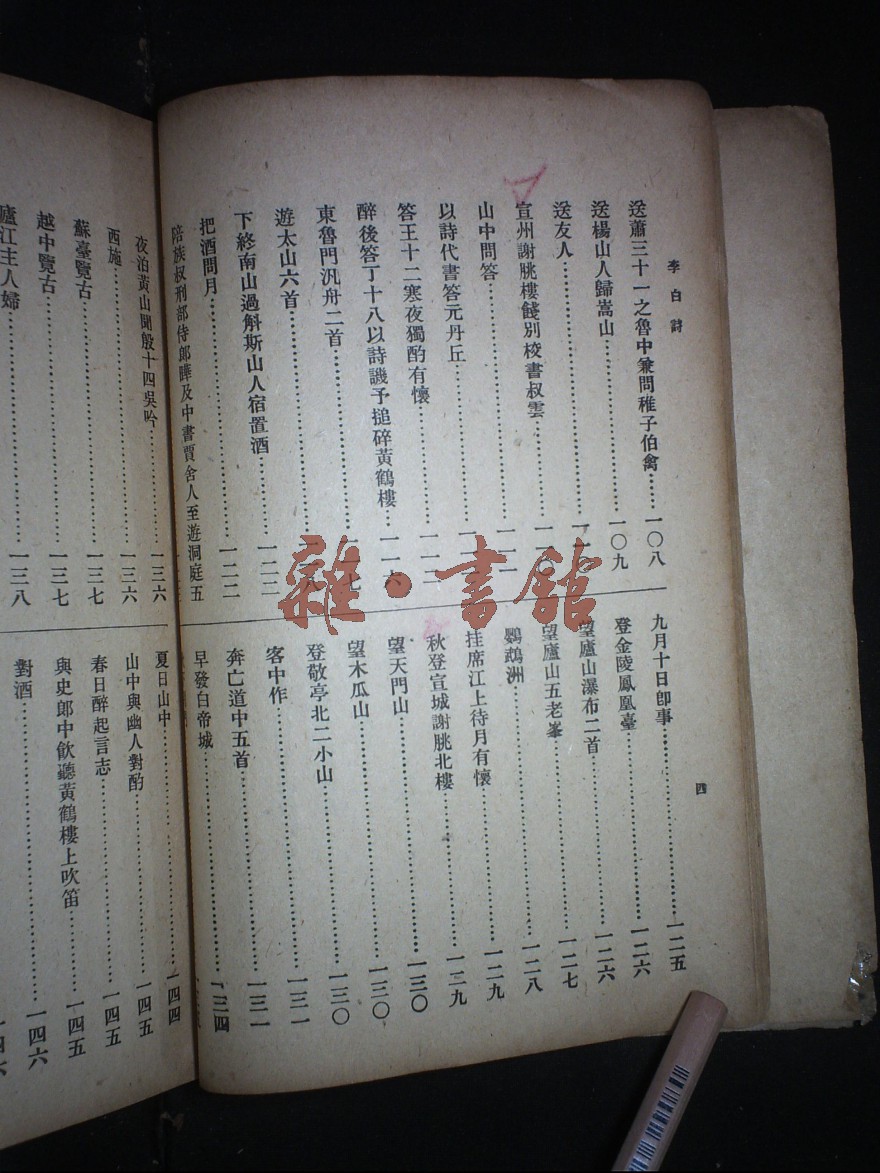 李白詩
送蕭三十一之魯中兼問稚子伯禽……一〇八
送楊山人歸嵩山……一〇九
送友人……
宣州謝朓樓餞別校書叔雲……
山中問答……
以詩代書答元丹丘……
答王十二寒夜獨酌有懷……一一二
醉後答丁十八以詩譏予搥碎黃鶴樓……一一六
東魯門汎舟二首……
遊太山六首……
下終南山過斛斯山人宿置酒……一二二
把酒問月……一二二
陪族叔刑部侍郎曄及中書賈舍人至遊洞庭五
九月十日卽事……一二五
登金陵鳳凰臺……一二六
望廬山瀑布二首……一二六
望廬山五老峯……一二七
鸚鵡洲……一二八
挂席江上待月有懷……一二九
秋登宣城謝朓北樓……一二九
望天門山……一三〇
望木瓜山……一三〇
登敬亭北二小山……一三〇
客中作……一三一
奔亡道中五首……一三一
早發白帝城……一三四
四
夜泊黃山聞殷十四吳吟……一三六
西施……一三六
蘇臺覽古……一三七
越中覽古……一三七
廬江主人婦……一三八
夏日山中……一四四
山中與幽人對酌……一四五
春日醉起言志……一四五
與史郎中飲聽黃鶴樓上吹笛……一四五
對酒……一四六
雜·書館